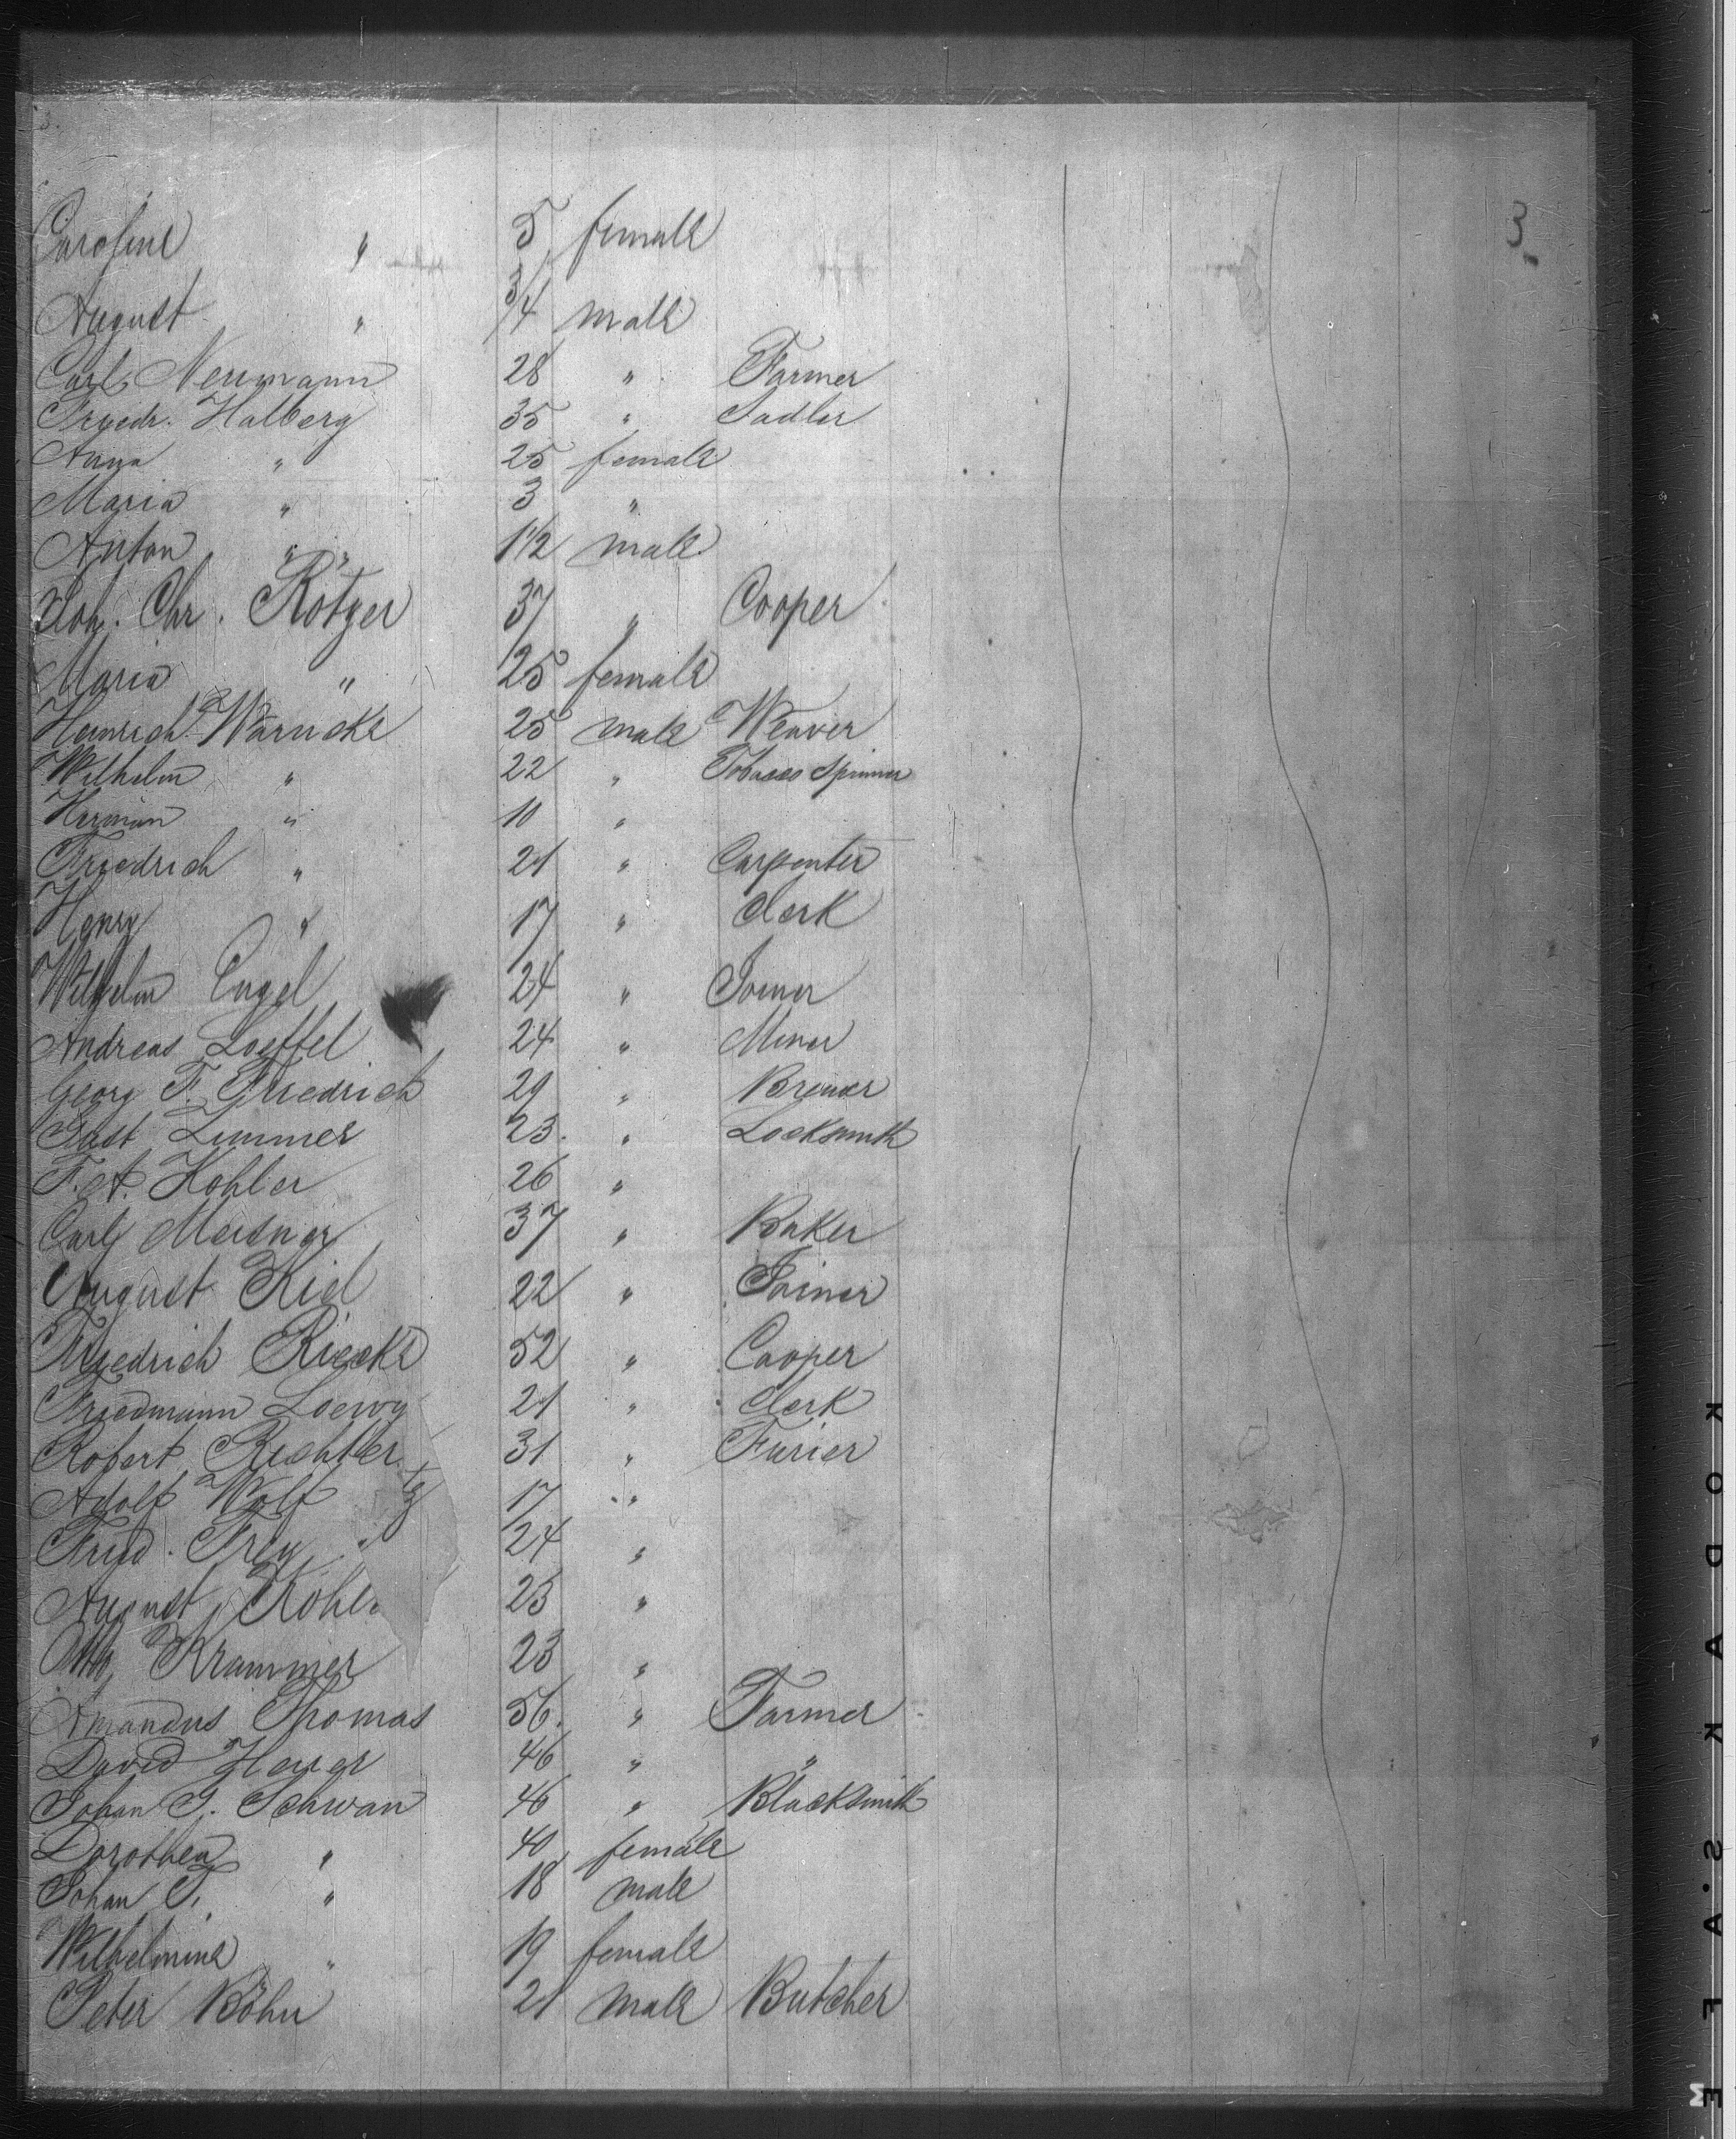 3
Caroline " 5 female
August " 3/4 male
Carl Neumann 28 " Farmer
Friedr. Halberg 35 " Sadler
Anna " 25 female
Maria " 3 "
Anton " " 1 1/2 male
Joh. Chr. Rötger 37 " Cooper
Maria " 25 female
Heinrich Warncke 25 male Weaver
Wilhelm " 22 " Tobacco Spinner
Herman " 10 "
Friedrich " 21 " Carpenter
Henry " 17 " Clerk
Wilhelm Engel 24 " Joiner
Andreas Loeffel 24 " Miner
Georg F. Friedrich 29 " Brewer
Just Limmer 23 " Locksmith
F. A. Kohler 26 "
Carl Meisner 37 " Baker
August Kiel 22 " Joiner
Friedrich Riecke 52 " Cooper
Friedmann Loewy 21 " Clerk
Robert Richter 31 " Furier
Adolf Wolf 17 "
Fried. Frey 24 "
August 23 "
Krammer 23 "
Amandus Thomas 56 " Farmer
David 46 " "
Johan J. Schwan 46 " Blacksmith
Dorothea " 40 female
Johan T. " 18 male
Wilhelmine " 19 female
Peter Böhn 21 male Butcher
KODAK S.A.F.E